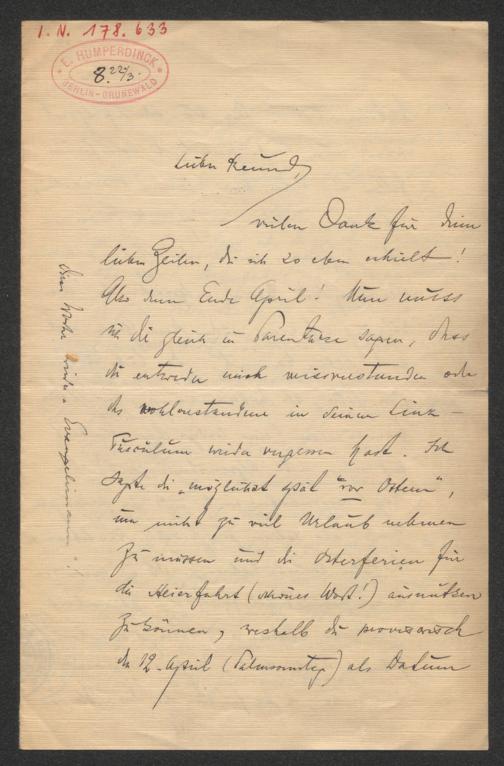 I. N. 178.633
E. HUMPERDINCK
8. 22/3.
BERLIN-GRUNEWALD
Lieber Freund,
vielen Dank für deine
lieben Zeilen, die ich so eben erhielt!
Also denn Ende April! Nun muss
ich dir gleich in Parenthese sagen, dass
du entweder mich missverstanden oder
das wohlverstandene in deinem Linz-
Tusculum wieder vergessen hast. Ich
sagte dir „möglichst spät vor Ostern",
um nicht zu viel Urlaub nehmen
zu müssen und die Osterferien für
die Heierfahrt (schönes Wort!) ausnützen
zu können, weshalb du provisorisch
den 12. April (Palmsonntag) als Datum
Evangelimann"!